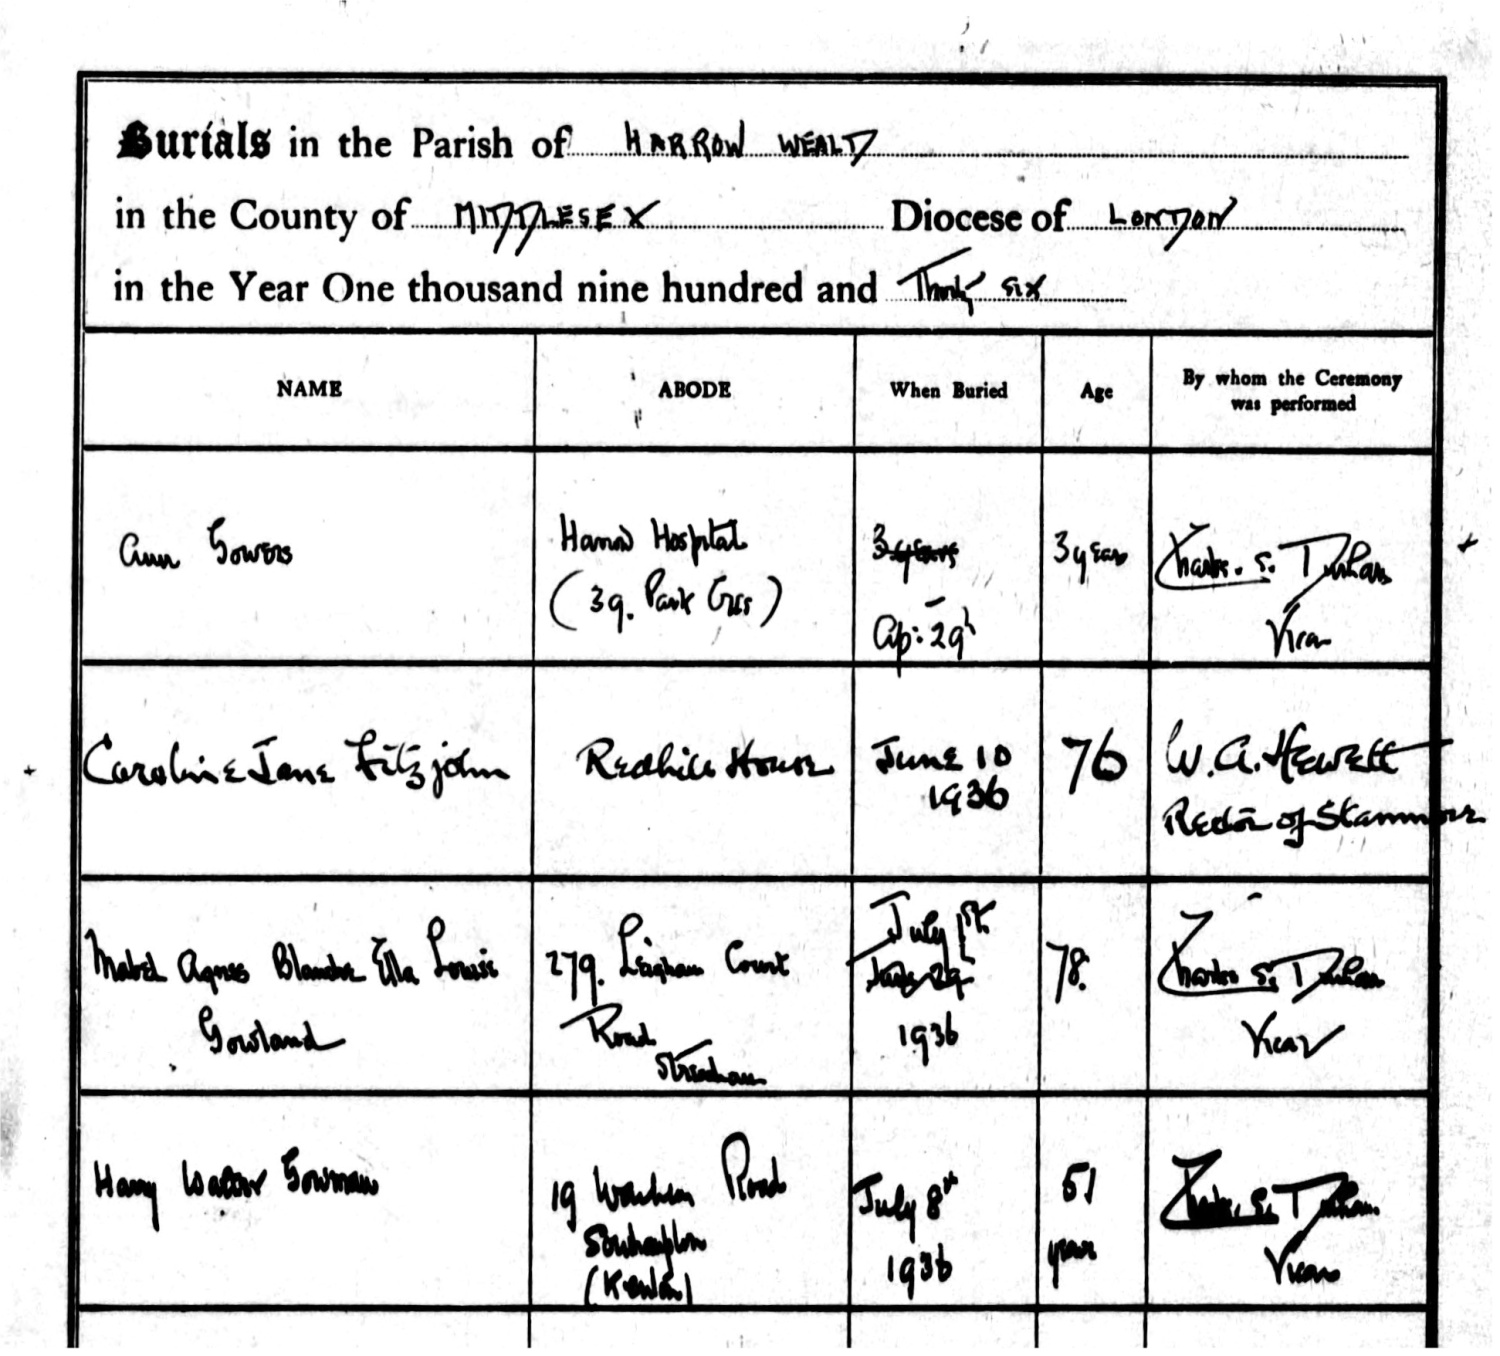 Burials in the Parish of HARROW WEALD
in the County of MIDDLESEX Diocese of LONDON
in the Year One thousand nine hundred and Thirty six
NAME ABODE When Buried Age By whom the Ceremony was performed
Ann Gowers
Harrow Hospital
(39. Park Cres)
3 years
Ap: 29th
3 years
Charles. S. Durham
Vicar
Caroline Jane Fitzjohn
Redhill House
June 10
1936
76
W. A. Hewett
Rector of Stanmore
Mabel Agnes Blanche Ella Louise
Gowland
279. Leigham Court
Road
Streatham
July 1st
June 29th
1936
78.
Charles S. Durham
Vicar
Harry Walter Gowman
19 Road
Southampton
July 8th
1936
51
years
Charles. S. Durham
Vicar